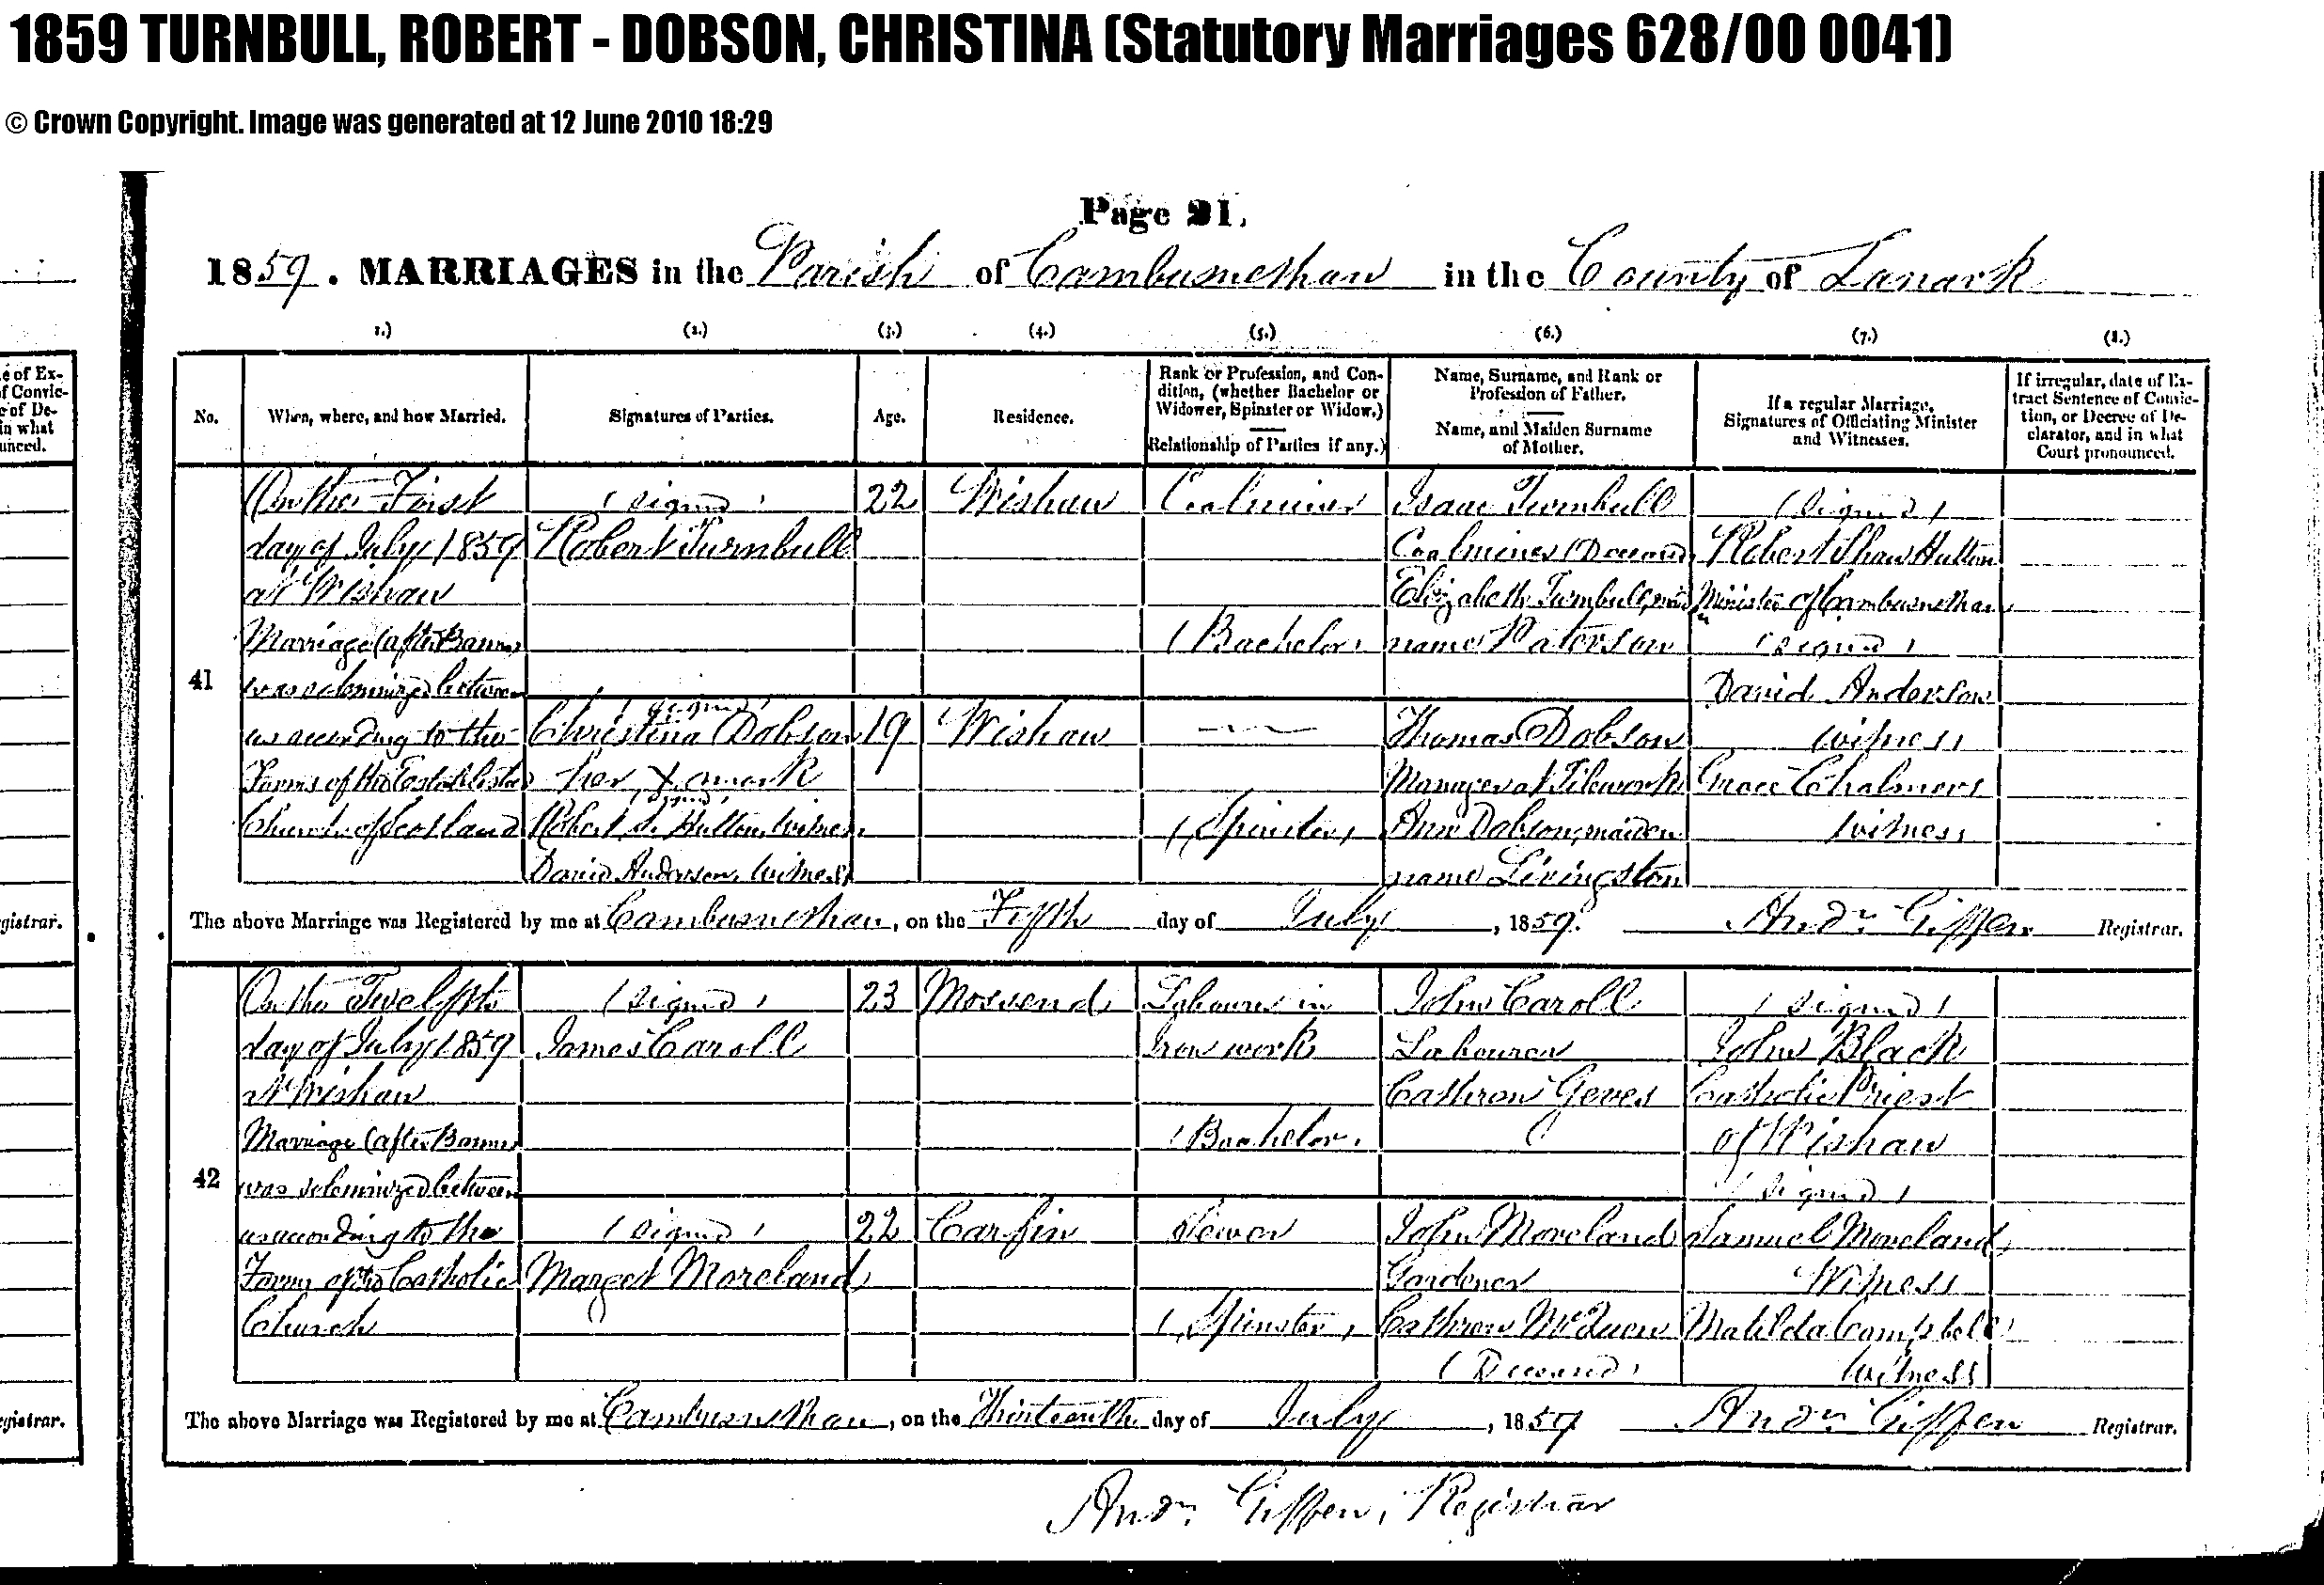 1859 TURNBULL, ROBERT - DOBSON, CHRISTINA (Statutory Marriages 628/00 0041)
© Crown Copyright. Image was generated at 12 June 2010 18:29
Page 21.
1859. MARRIAGES in the Parish of Cambusnethan in the County of Lanark
1.) (2.) (3.) (4.) (5.) (6.) (7.) (8.)
No.
When, where, and how Married.
Signatures of Parties.
Age.
Residence.
Rank or Profession, and Con-
dition, (whether Bachelor or
Widower, Spinster or Widow.)
Relationship of Parties if any.)
Name, Surname, and Rank or
Profession of Father.
Name, and Maiden Surname
of Mother.
If a regular Marriage,
Signatures of Officiating Minister
and Witnesses.
If irregular, date of Ex-
tract Sentence of Convic-
tion, or Decree of De-
clarator, and in what
Court pronounced.
41
On the First
day of July 1859
at Wishaw
Marriage (after Banns)
was solemnized between
us according to the
Forms of the Established
Church of Scotland
(signed)
Robert Turnbull
22
Wishaw
Coalminer
(Bachelor)
Isaac Turnbull
Coalminer (Deceased)
Elizabeth Turnbull,
name Paterson
(signed)
Christina Dobson
her x mark
(signed)
Robert S. Hutton, Witness.
David Anderson, Witness
19
Wishaw
(Spinster)
Thomas Dobson
Manager at Tilework
Ann Dobson, maiden
name Livingston
(signed)
Robert Shaw Hutton
Minister of Cambusnethan
(signed)
David Anderson
witness
Grace Chalmers
witness
The above Marriage was Registered by me at Cambusnethan, on the Fifth day of July, 1859. Andw Giffen Registrar.
42
On the Twelfth
day of July 1859
at Wishaw
Marriage (after Banns)
was solemnized between
us according to the
Forms of the Catholic
Church
(signed)
James Caroll
23
Mossend
Labourer in
Iron work
(Bachelor)
John Caroll
Labourer
Cathron Geves
(signed)
Marget Moreland
22
Carfin
Sewer
(Spinster)
John Moreland
Gardener
Cathron McQuen
(Deceased)
(signed)
John Black
Catholic Priest
of Wishaw
(signed)
Samuel Moreland
Witness
Matilda Campbell
Witness
The above Marriage was Registered by me at Cambusnethan, on the Thirteenth day of July, 1859 Andw Giffen Registrar.
Andw Giffen, Registrar